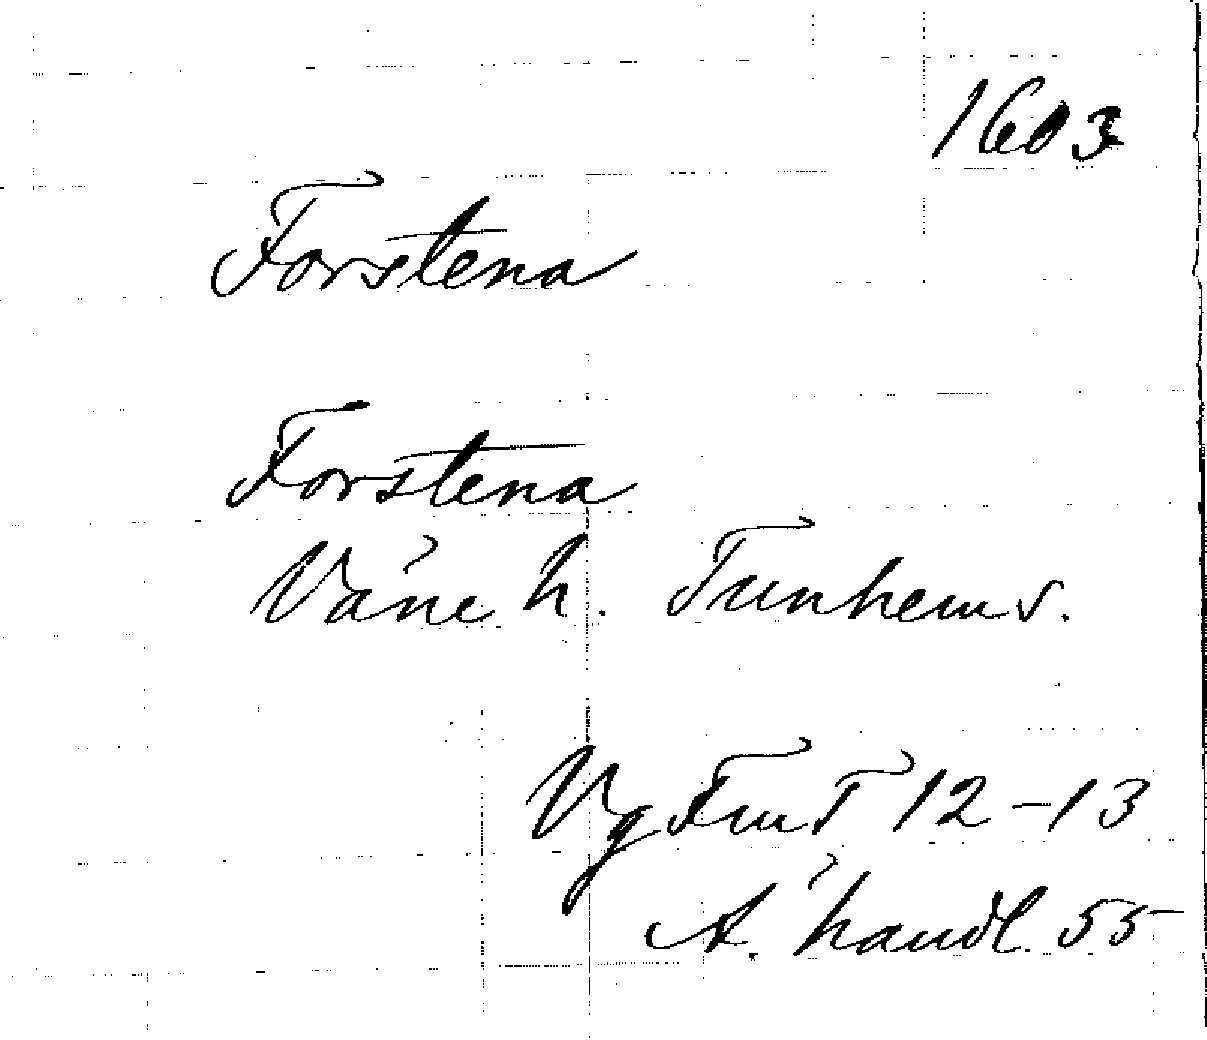 1603
Forstena
Forstena
Väne h. Tunhem s.
Vg FmT 12-13
A. handl. 55